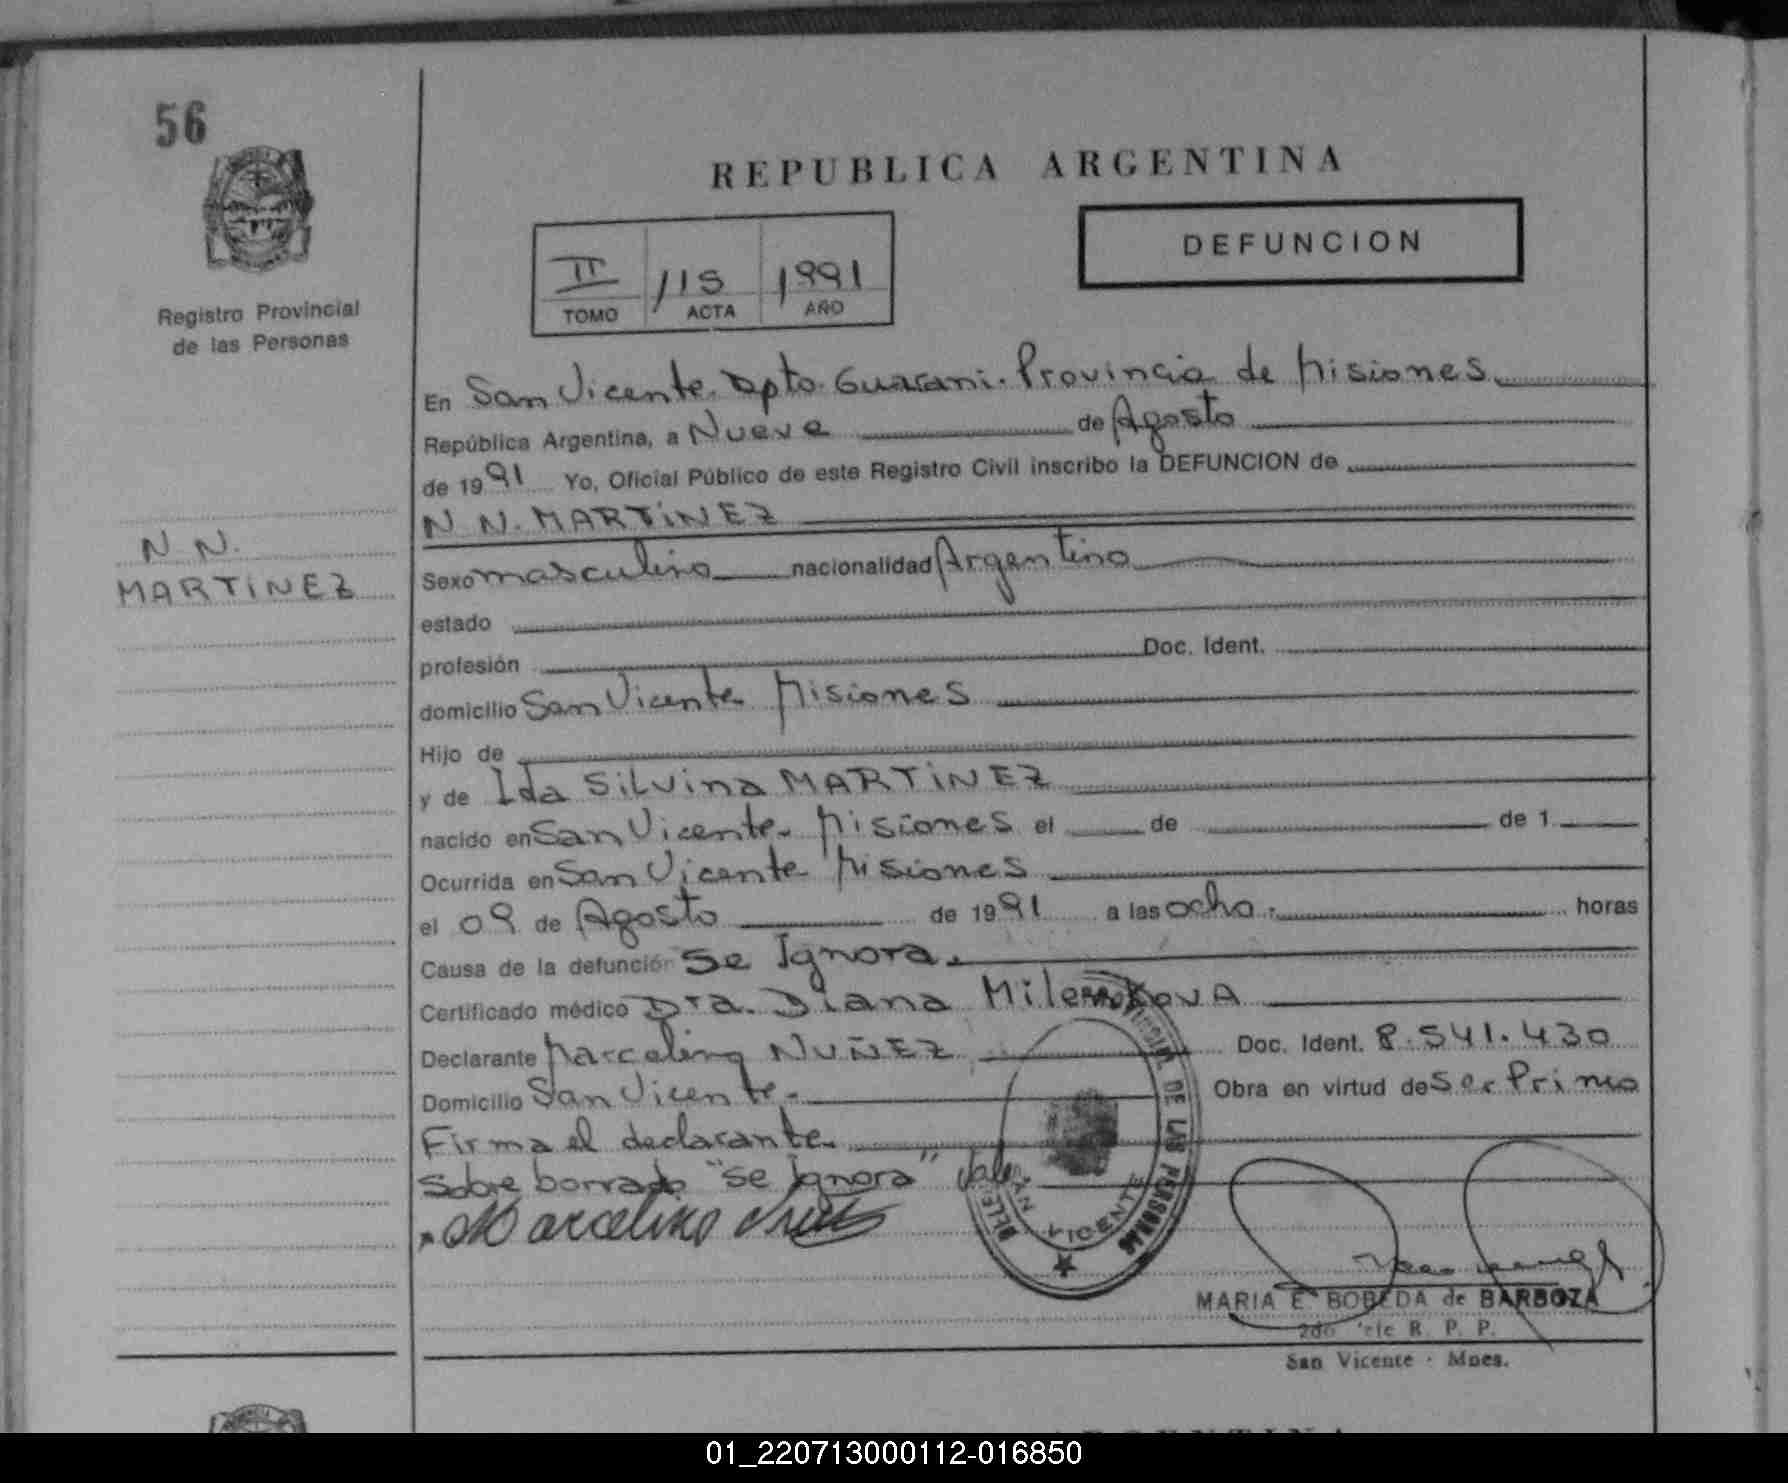 56
REPUBLICA ARGENTINA
DEFUNCION
II /115 1991
TOMO ACTA AÑO
Registro Provincial
de las Personas
En San Vicente. Dpto. Guarani. Provincia de Misiones
República Argentina, a Nueve de Agosto
de 1991 Yo, Oficial Público de este Registro Civil inscribo la DEFUNCION de
N N. MARTINEZ
N N.
MARTINEZ
Sexo masculino nacionalidad Argentino
estado
profesión Doc. Ident.
domicilio San Vicente Misiones
Hijo de
y de Ida Silvina MARTINEZ
nacido en San Vicente. Misiones el de de 1
Ocurrida en San Vicente Misiones
el 09 de Agosto de 1991 a las ocho. horas
Causa de la defunción Se Ignora.
Certificado médico Dra. Diana
Declarante Marcelino NUÑEZ Doc. Ident. 8.541.430
Domicilio San Vicente.- Obra en virtud de Ser Primo
Firma el declarante.
Sobre borrado "se Ignora" Vale
Marcelino
PROVINCIAL DE LAS PERSONAS
SAN VICENTE
MARIA E. BOBEDA de BARBOZA
2do Jefe R. P. P.
San Vicente - Mnes.
ARGENTINA
01_220713000112-016850